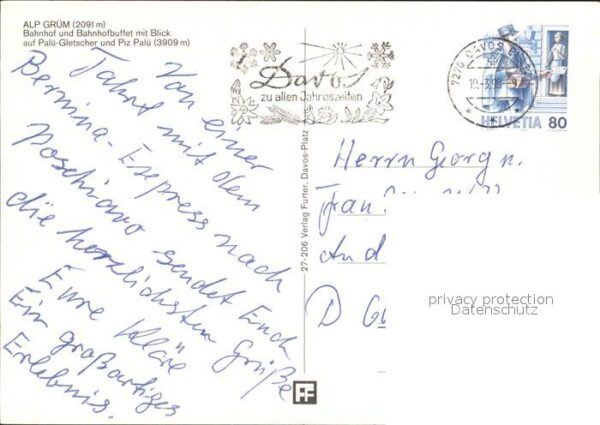 ALP GRÜM (2091 m)
Bahnhof und Bahnhofbuffet mit Blick
auf Palü-Gletscher und Piz Palü (3909 m)
Von einer
Fahrt mit dem
Bernina-Express nach
Poschiavo sendet Euch
die herzlichsten Grüße
Eure Kläre
Ein großartiges
Erlebnis.
27-206 Verlag Furter, Davos-Platz
Davos
zu allen Jahreszeiten
7270 DAVOS
HELVETIA 80
Herrn Georg u.
Frau
An d
D
privacy protection
Datenschutz